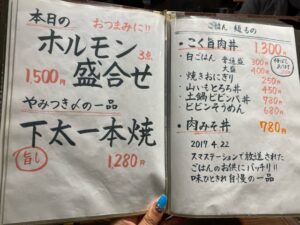 本日の
おつまみに!!
ホルモン
盛合せ
3点
1500円
やみつき〆の一品
下太一本焼
旨し
1,280円
ごはん 麺もの
・こく旨肉丼 1,300円
・白ごはん 普通盛 300円
大盛 400円
・焼きおにぎり 250円
・山いもとろろ丼 450円
・土鍋ビビンバ丼 780円
・ビビンそうめん 680円
・肉みそ丼 780円
2017.4.22
スマステーションで放送された
ごはんのお供にバッチリ!!
味ひときわ自慢の一品